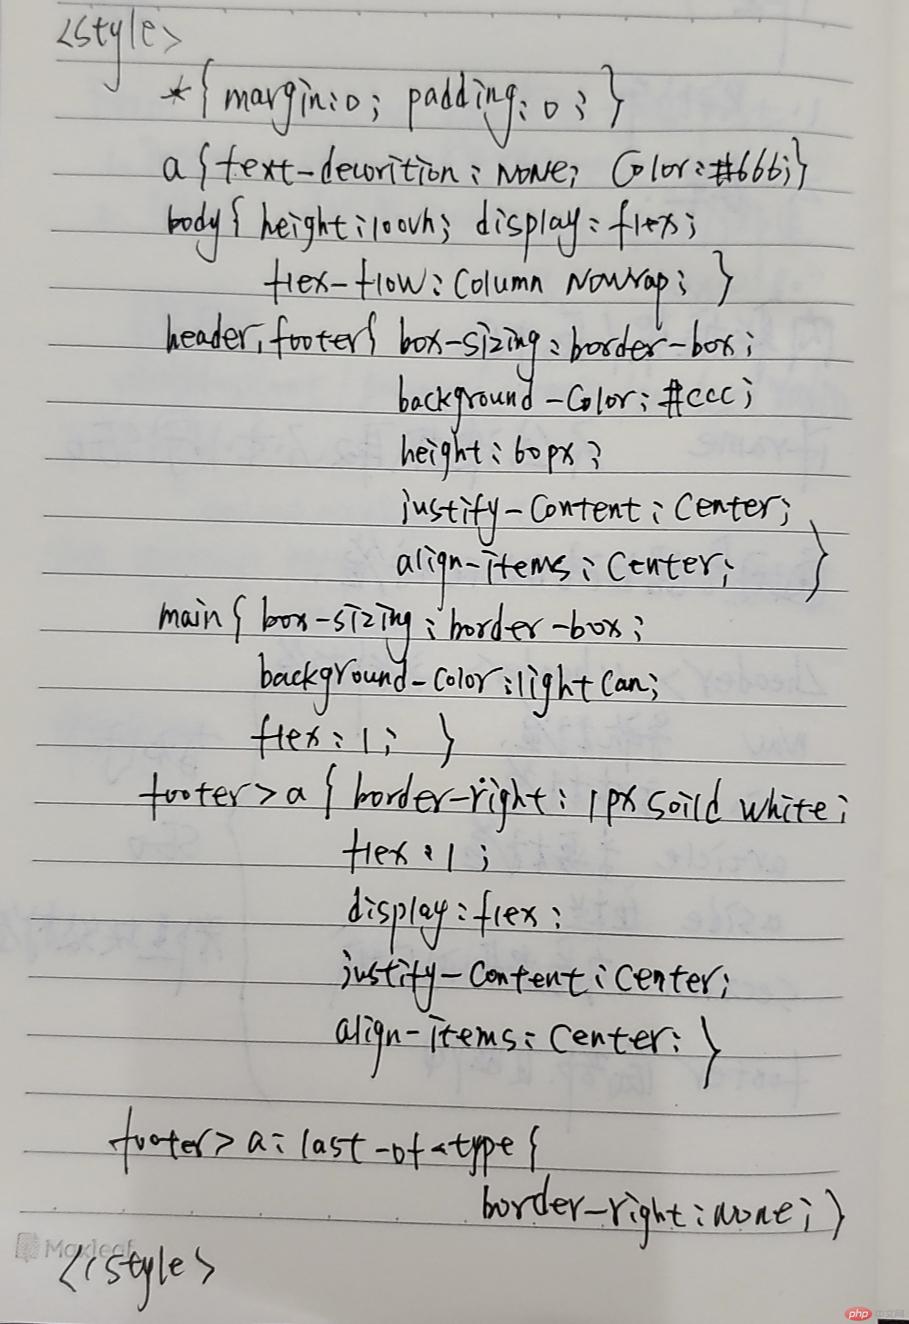 <style>
*{margin:0; padding:0;}
a{text-decorition:none; Color:#666;}
body{height:100vh; display:flex;
flex-flow:Column nowrap;}
header,footer{box-sizing:border-box;
background-Color:#ccc;
height:60px;
justify-Content:Center;
align-items:Center;}
main{box-sizing:border-box;
background-color:lightCan;
flex:1;}
footer>a{border-right:1px soild white;
flex:1;
display:flex;
justify-Content:Center;
align-items:Center;}
footer>a:last-of-type{
border-right:none;}
Maxleaf
</style>
php 中文网